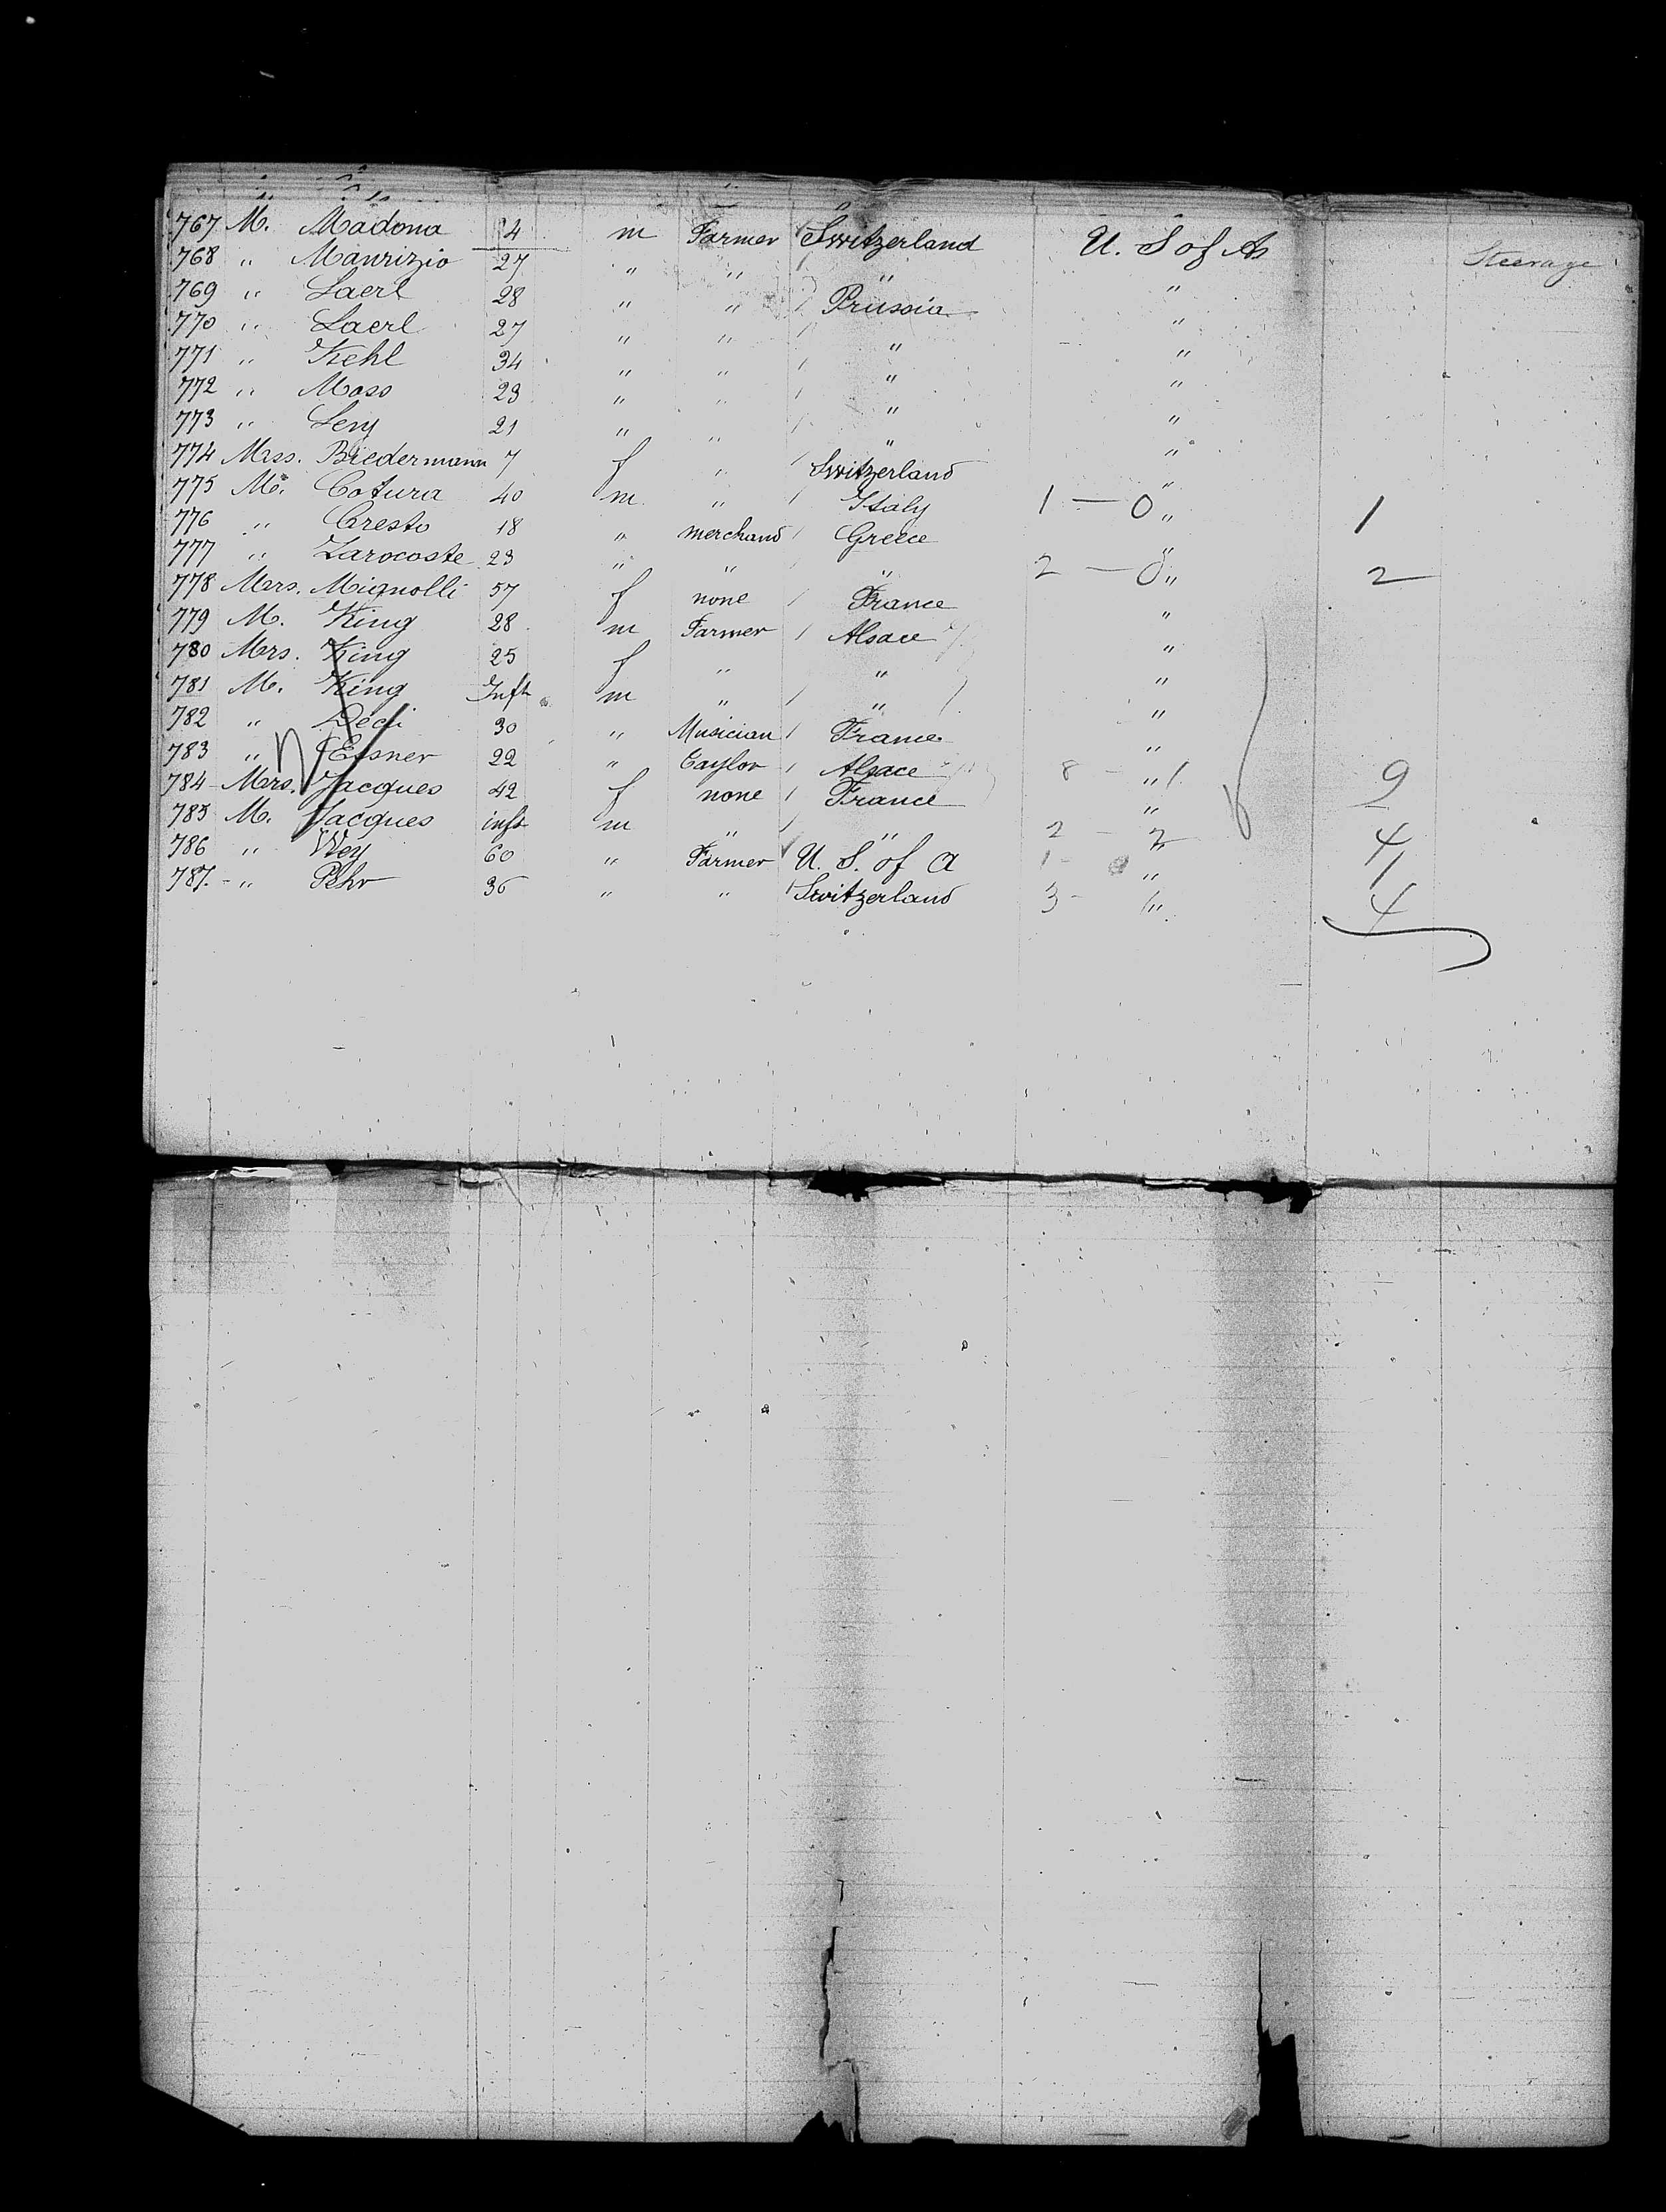 767 M. Madona 4 m Farmer Switzerland U. S of A Steerage
768 " Maurizio 27 " " " "
769 " Laerl 28 " " Prussia "
770 " Laerl 27 " " " "
771 " Kehl 34 " " " "
772 " Moss 23 " " " "
773 " Leny 21 " " " "
774 Mrss. Biedermann 7 f " Switzerland "
775 Mr. Cotura 40 m " Italy 1 — 0 " 1
776 " Cresto 18 " merchand Greece "
777 " Zarocoste 23 " " " 2 — 0 " 2
778 Mrs. Mignolli 57 f none France "
779 M. King 28 m Farmer Alsace "
780 Mrs. King 25 f " " "
781 M. King Inft m " " "
782 " Deci 30 " Musician France "
783 " Elsner 22 " Taylor Alsace 8 - " 1 9
784 Mrs. Jacques 42 f none France "
785 M. Jacques inft m " " 2 - 2 4
786 " Wey 60 " Farmer U. S. of a 1 - " 1
787. " Pehr 36 " " Switzerland 3 - 1 " 4